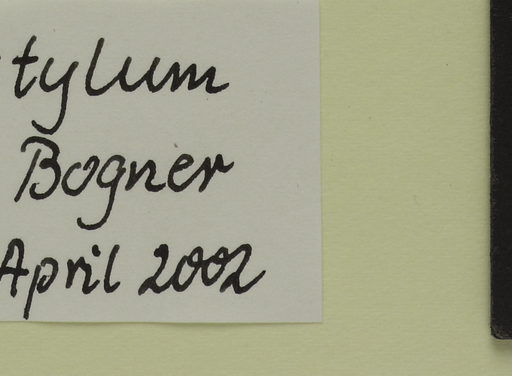 tylum
Bogner
April 2002